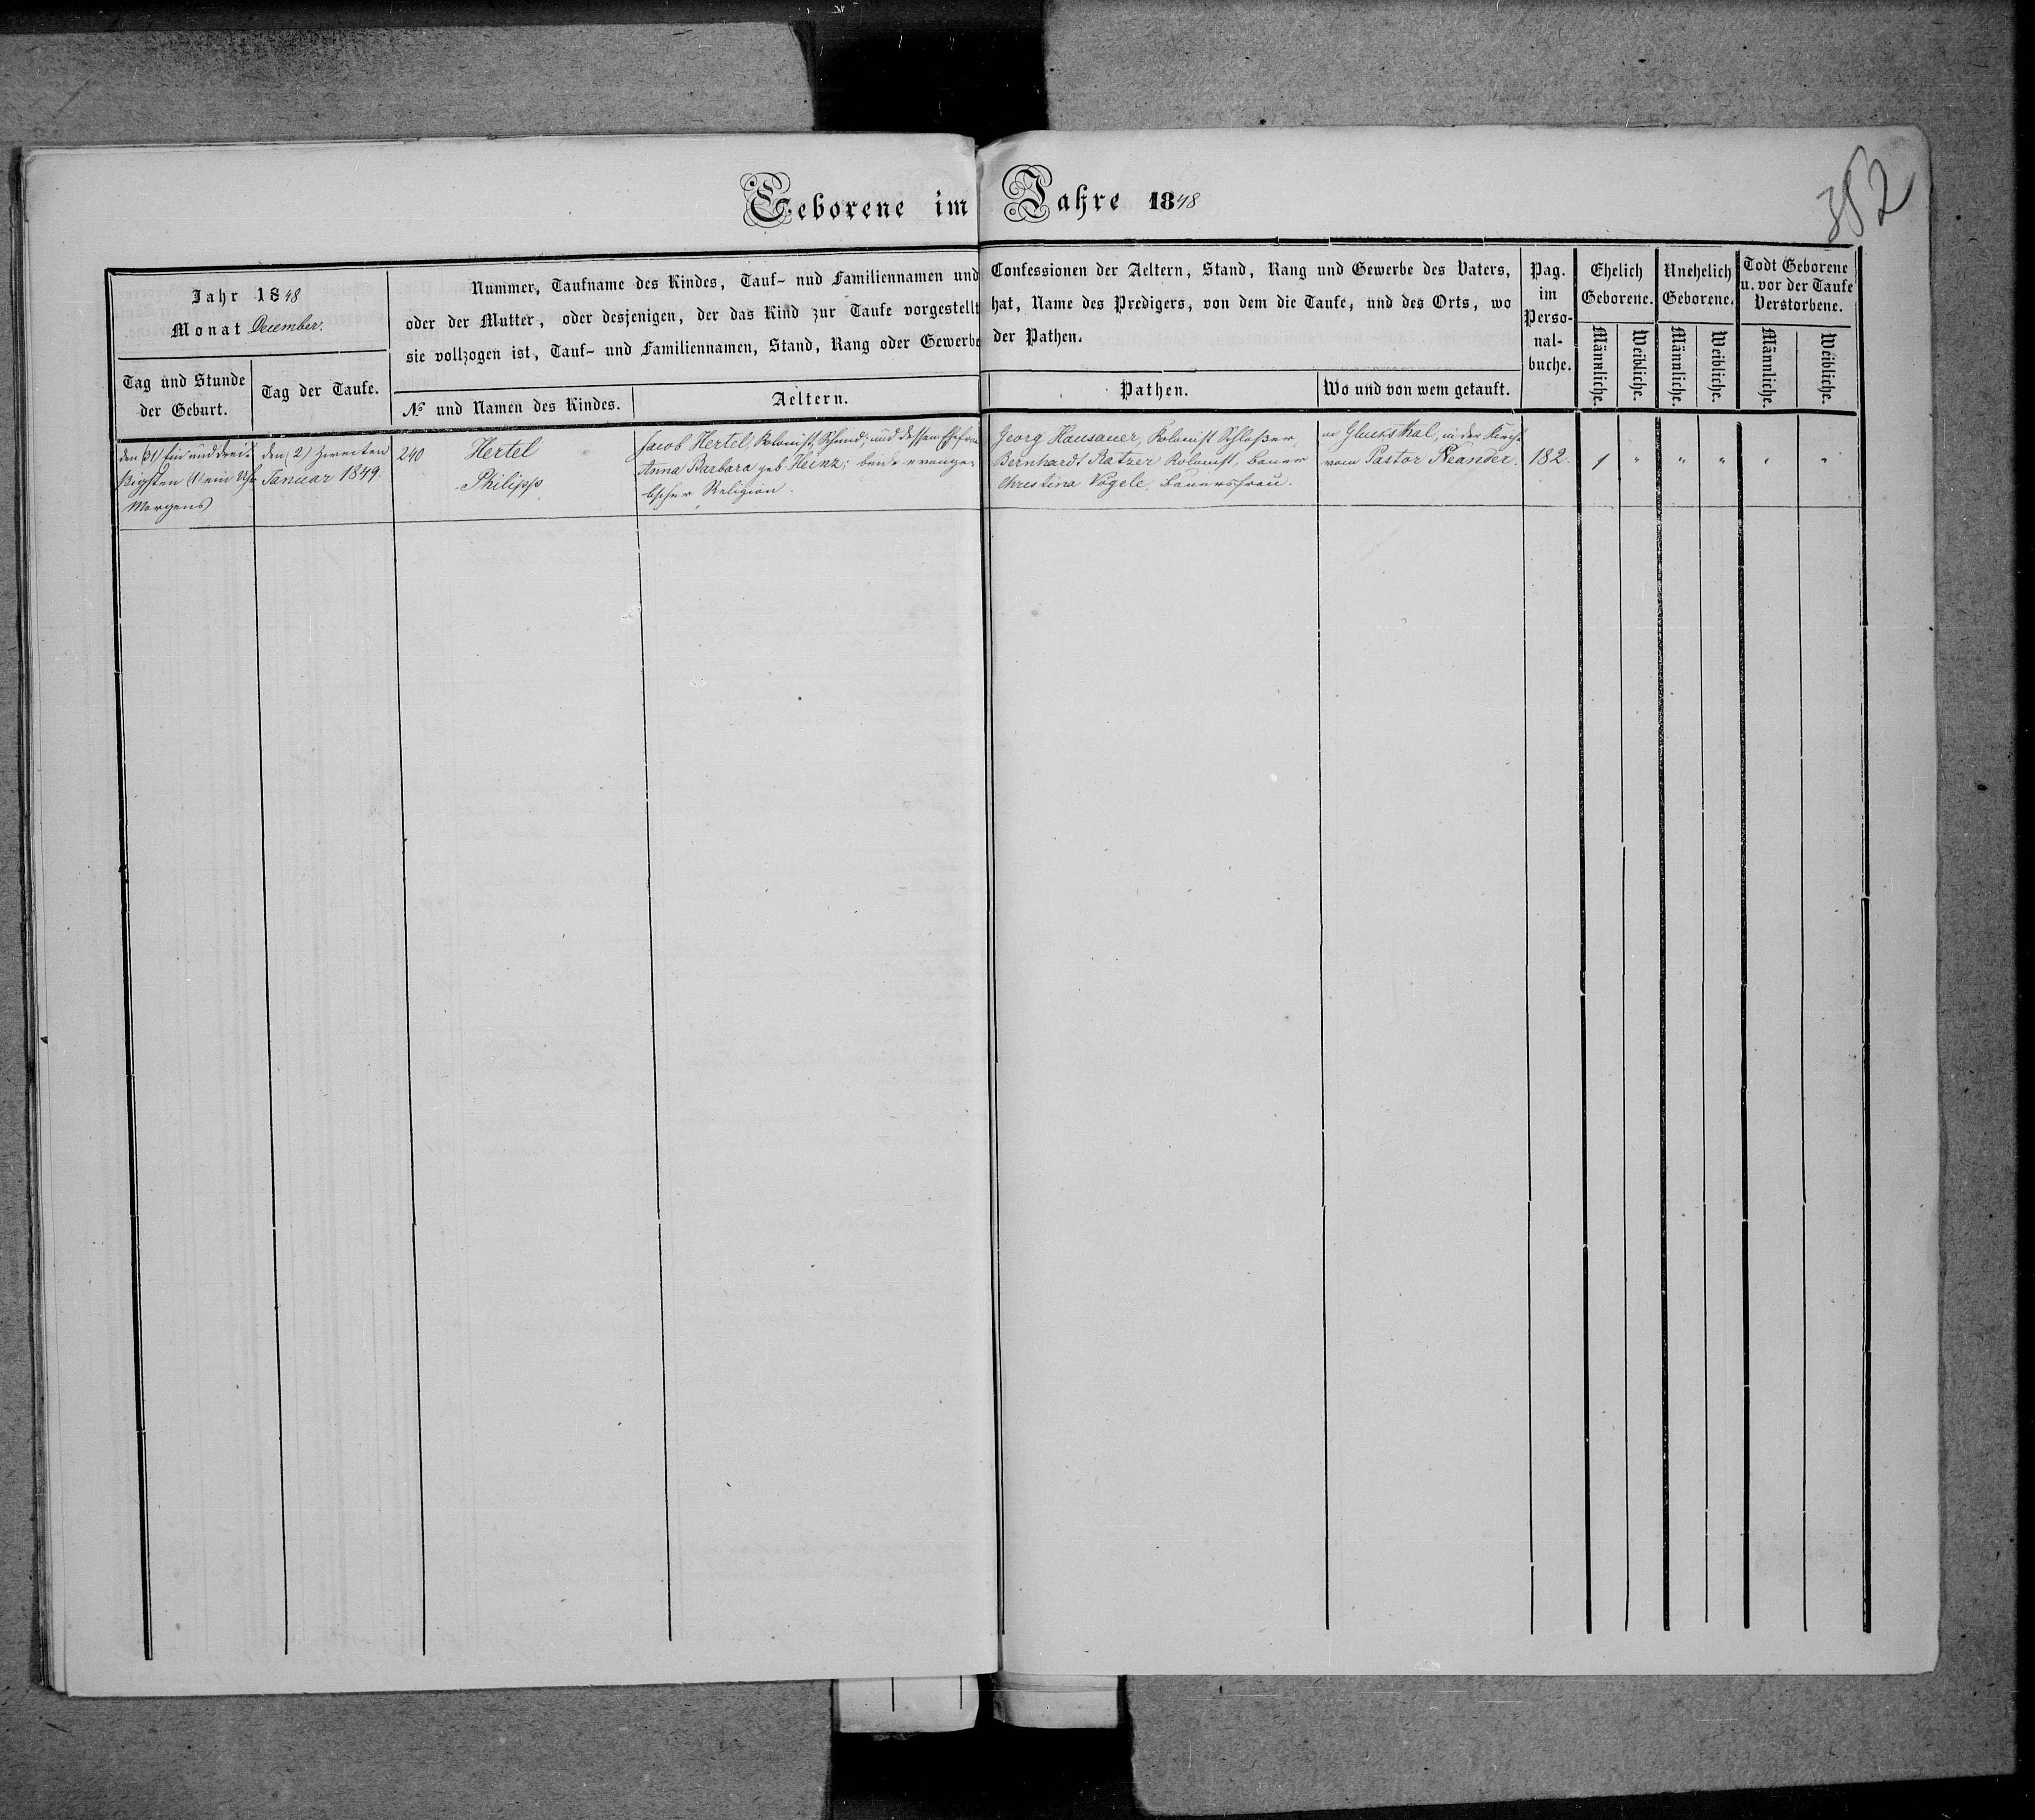 352
Geborene im Jahre 1848
Jahr 1848
Monat December.
Tag und Stunde der Geburt.
Tag der Taufe.
Nummer, Taufname des Kindes, Tauf- nud Familiennamen und Confessionen der Aeltern, Stand, Rang und Gewerbe des Vaters,
oder der Mutter, oder desjenigen, der das Kind zur Taufe vorgestellt hat, Name des Predigers, von dem die Taufe, und des Orts, wo
sie vollzogen ist, Tauf- und Familiennamen, Stand, Rang oder Gewerbe der Pathen.
№ und Namen des Kindes.
Aeltern.
Pathen.
Wo und von wem getauft.
Pag.
im
Perso-
nal-
buche.
Ehelich
Geborene.
Männliche.
Weibliche.
Unehelich
Geborene.
Männliche.
Weibliche.
Todt Geborene
u. vor der Taufe
Verstorbene.
Männliche.
Weibliche.
den (31) Ein und drei-
ßigsten (1) ein Uhr
Morgens
den (2) zweiten
Januar 1849.
240
Hertel
Philipp
Jacob Hertel, Kolonist, Schmid; und dessen Ehefrau
Anna Barbara geb Heinz; beide evange-
lischer Religion.
Georg Hausauer, Kolonist Schloßer
Bernhardt Ratzer Kolonist, Bauer
Christina Vögele, Bauersfrau.
in Glucksthal, in der Kirche
vom Pastor Neander.
182.
1 " " " " "